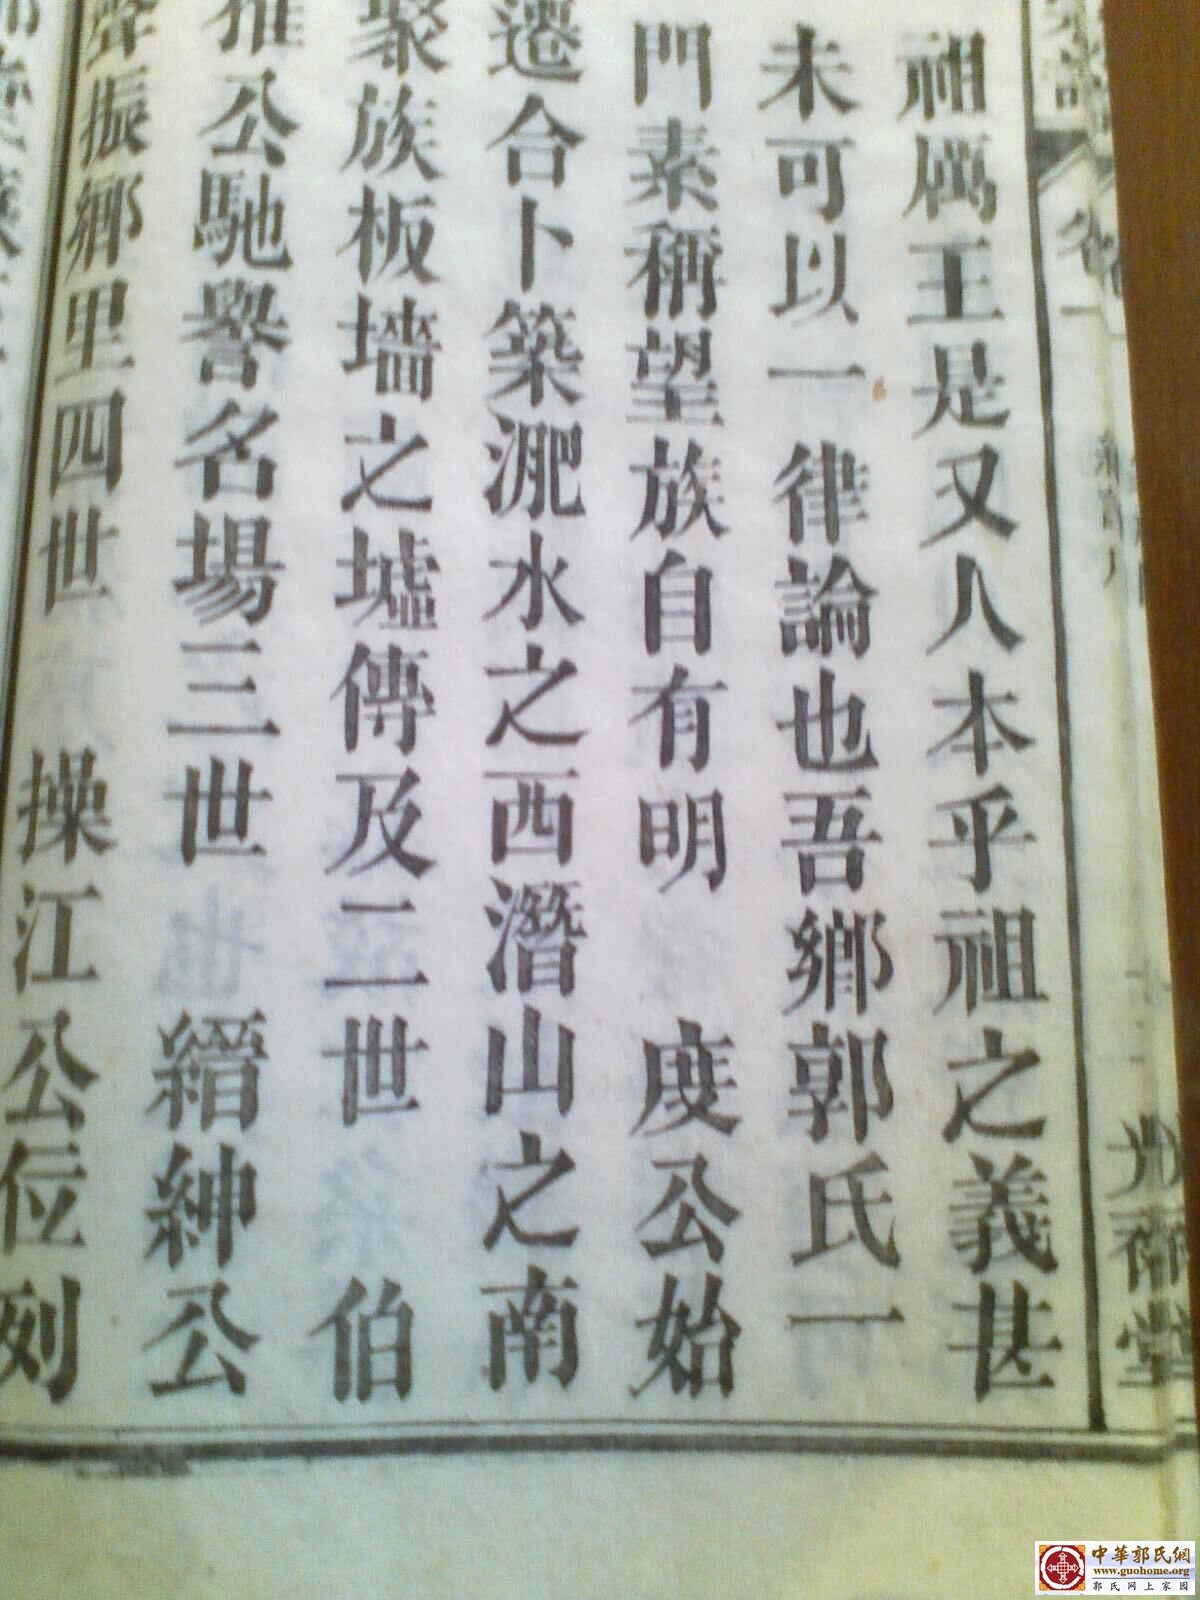 祖厲王是又人本乎祖之義甚
未可以一律論也吾鄉郭氏一
門素稱望族自有明 度公始
遷合卜築淝水之西潛山之南
聚族板墻之墟傳及二世 伯
推公馳譽名場三世 縉紳公
聲振鄉里四世 操江公位列
卷一
堂
中華郭氏網
www.guohome.org
郭氏网上家园